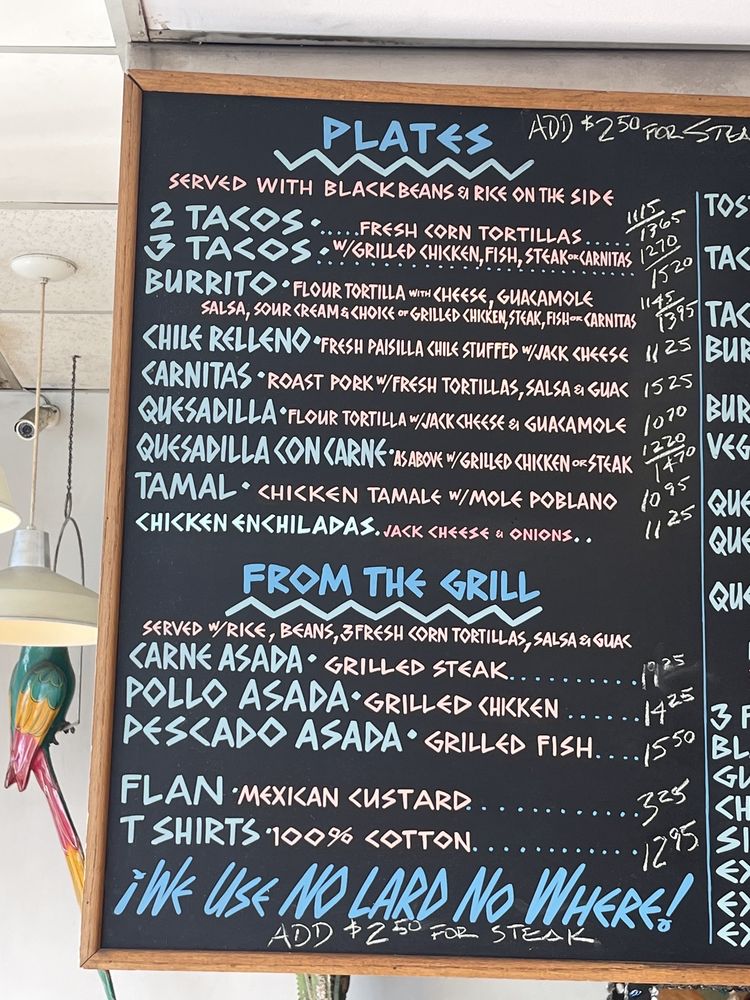 PLATES
ADD $2.50 FOR STEA
SERVED WITH BLACK BEANS & RICE ON THE SIDE
2 TACOS • ..... FRESH CORN TORTILLAS ..... 11 15 / 13 65
3 TACOS • W/GRILLED CHICKEN, FISH, STEAK OR CARNITAS 12 70 / 15 20
BURRITO • FLOUR TORTILLA WITH CHEESE, GUACAMOLE 11 45 / 13 95
SALSA, SOUR CREAM & CHOICE OF GRILLED CHICKEN, STEAK, FISH OR CARNITAS
CHILE RELLENO • FRESH PAISILLA CHILE STUFFED W/JACK CHEESE 11 25
CARNITAS • ROAST PORK W/FRESH TORTILLAS, SALSA & GUAC 15 25
QUESADILLA • FLOUR TORTILLA W/JACK CHEESE & GUACAMOLE 10 70
QUESADILLA CON CARNE • AS ABOVE W/GRILLED CHICKEN OR STEAK 12 20 / 14 70
TAMAL • CHICKEN TAMALE W/MOLE POBLANO 10 95
CHICKEN ENCHILADAS. JACK CHEESE & ONIONS.. 11 25
FROM THE GRILL
SERVED W/RICE, BEANS, 3 FRESH CORN TORTILLAS, SALSA & GUAC
CARNE ASADA • GRILLED STEAK ..... 19 25
POLLO ASADA • GRILLED CHICKEN ..... 14 25
PESCADO ASADA • GRILLED FISH ..... 15 50
FLAN • MEXICAN CUSTARD ..... 3 25
T SHIRTS • 100% COTTON ..... 12 95
¡WE USE NO LARD NO WHERE!
ADD $2.50 FOR STEAK
TOS
TAC
TAC
BUR
BUR
VEG
QUE
QUE
QUE
3 F
BL
GU
CH
SI
EX
EX
EX